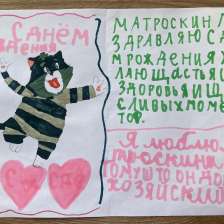 С ДНЁМ
ДЕНИЯ
МАТРОСКИН
ЗДРАВЛЯЮ С
М РОЖДЕНИЯ
ЛАЮ ЩАСТЬЯ
ЗДОРОВЬЯ И Щ
СЛИВЫХ МОМЕ
ТОВ.
Я ЛЮБЛЮ
ТРОСКИНА
ТОМУ ШТО ОН ДО
ХОЗЯЙСКИЙ